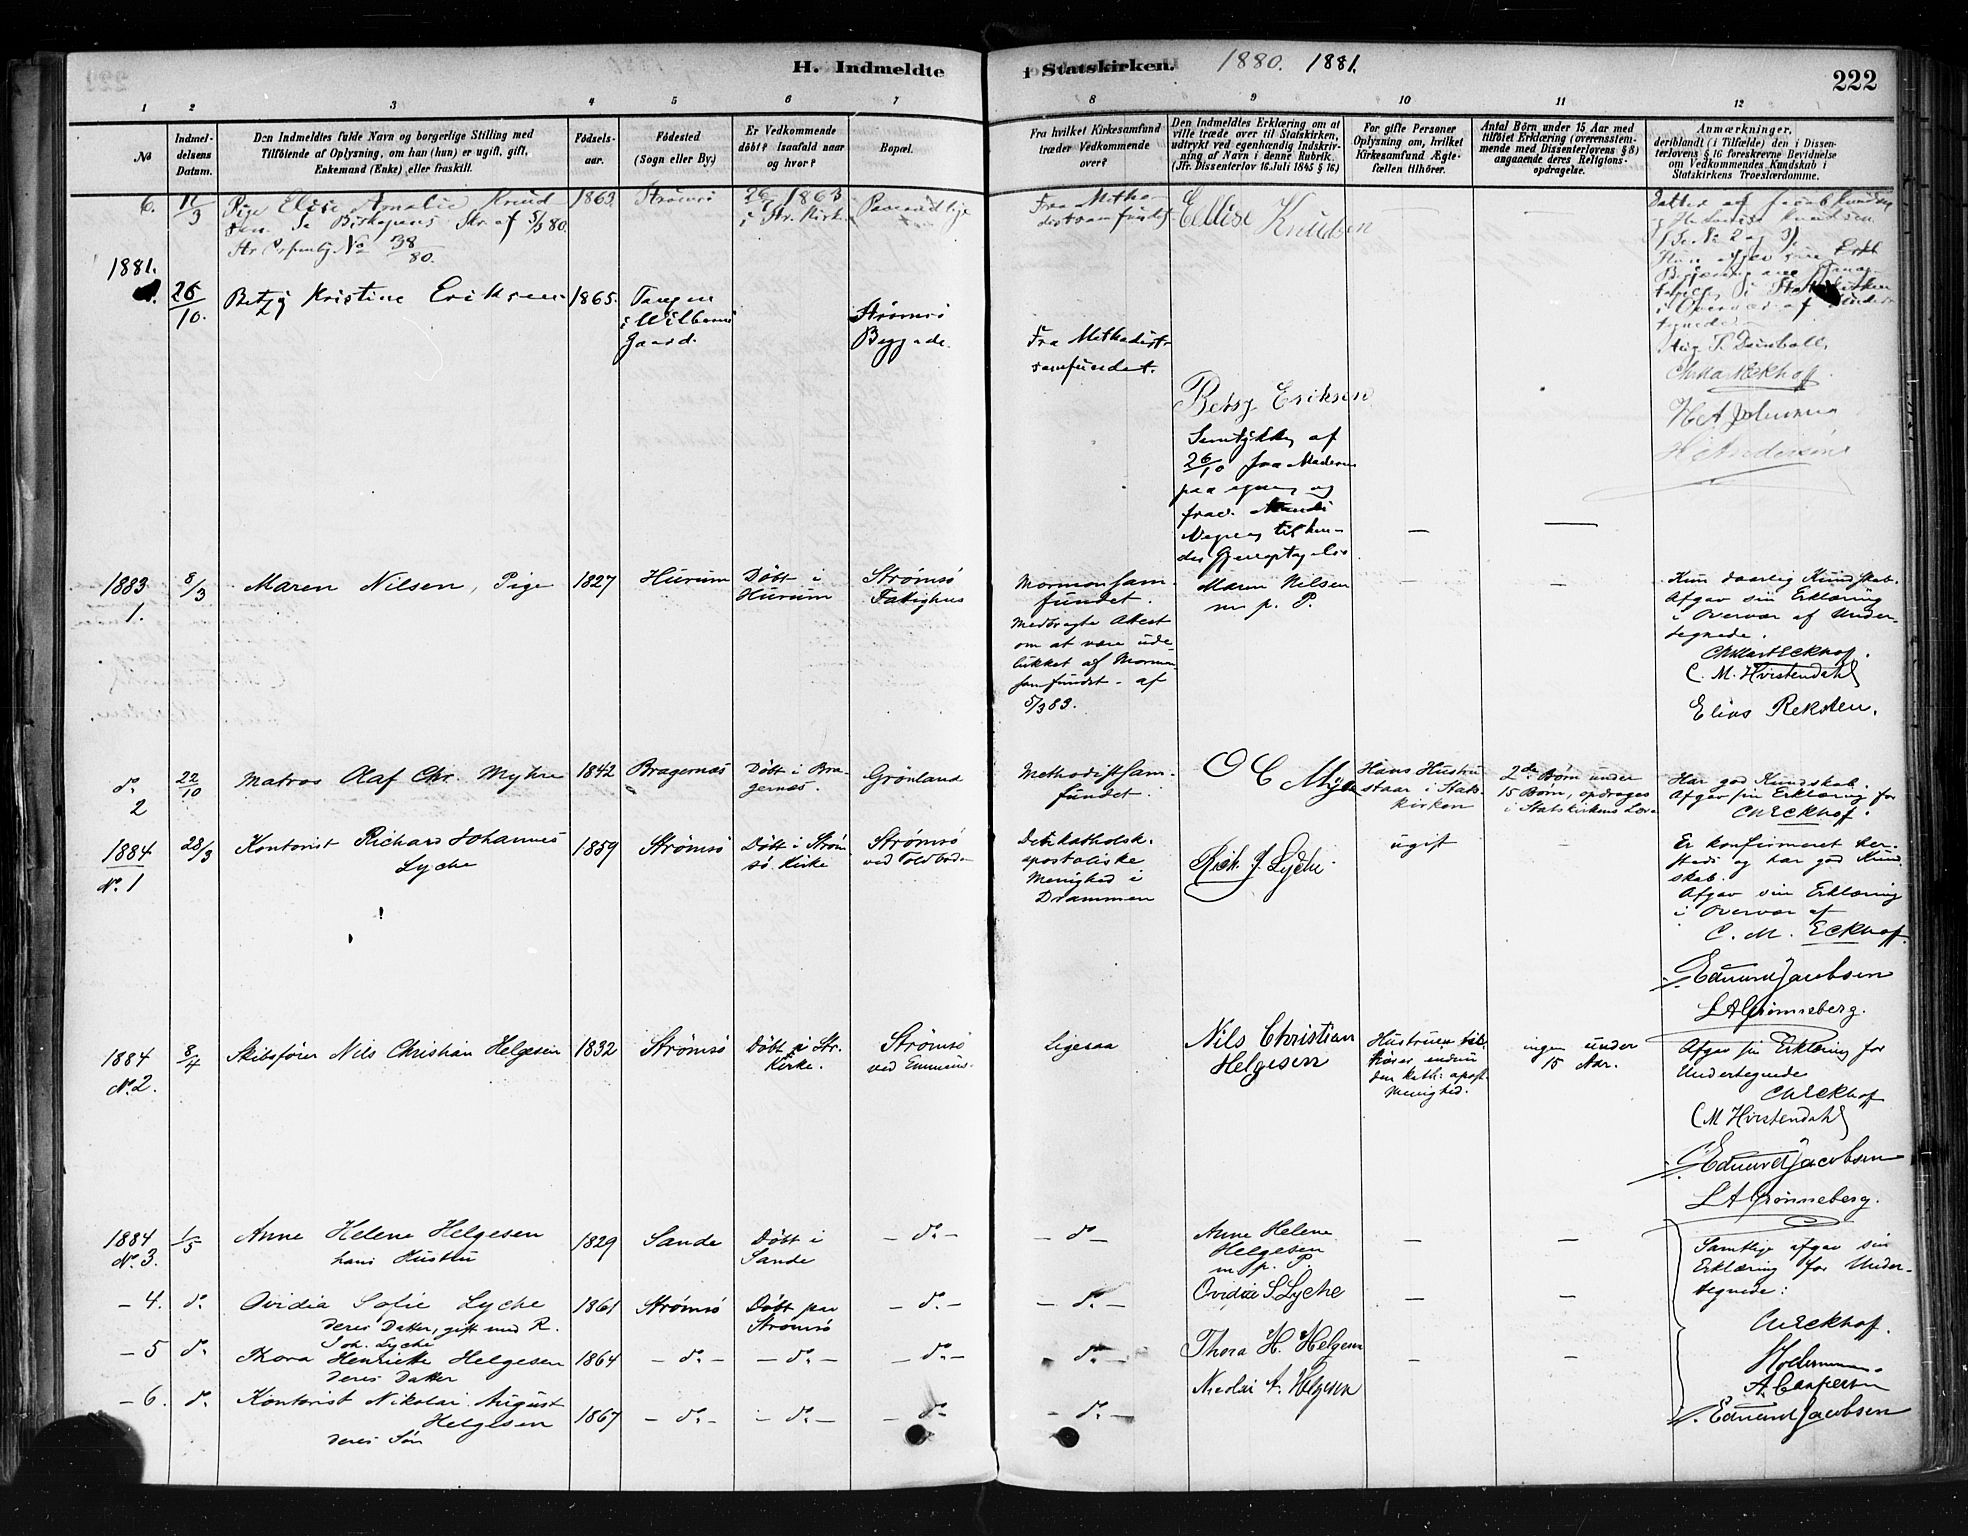 H. Indmeldte i Statskirken. 1880. 1881. 222
1 2 3 4 5 6 7 8 9 10 11 12
No
Indmel-
delsens
Datum.
Den Indmeldtes fulde Navn og borgerlige Stilling med
Tilföiende af Oplysning, om han (hun) er ugift, gift,
Enkemand (Enke) eller fraskilt.
Födsels-
aar.
Födested
(Sogn eller By.)
Er Vedkommende
döbt? Isaafald naar
og hvor?
Bopæl.
Fra hvilket Kirkesamfund
træder Vedkommende
over?
Den Indmeldtes Erklæring om at
ville træde over til Statskirken,
udtrykt ved egenhændig Indskriv-
ning af Navn i denne Rubrik.
(Jfr. Dissenterlov 16 Juli 1845 § 16)
For gifte Personer
Oplysning om, hvilket
Kirkesamfund Ægte-
fællen tilhörer.
Antal Börn under 15 Aar med
tilföiet Erklæring (overensstem-
mende med Dissenterlovens § 8)
angaaende deres Religions-
opdragelse.
Anmærkninger,
deriblandt (i Tilfælde) den i Dissen-
terlovens § 16 foreskrevne Bevidnelse
om Vedkommendes Kundskab i
Statskirkens Troeslærdomme.
6. 11/3
Pige Elise Amalie Knud
sen
af 5/3 80.
No 38/80.
1863
Strömsö
1863
i Str. Kirke
Fra Metho-
distsamfundet
Ellise Knudsen
Datter af Jacob Knudsen
No 2 og 3).
1881.
26/10.
Betzy Kristine Eriksen
1865.
Tangen
i Wilbergs
Gaard.
Strömsö
Beggade.
Fra Methodist-
samfundet.
Betsy Eriksen
Samtykke af
26/10 fra Moderen
paa egne og
Vegne til hen-
des Gjenoptagelse
Chr Mart Eckhof.
H A Johansen
H Andersen
1883.
1.
8/3
Maren Nilsen, Pige
1827
Hurum
Döbt i
Hurum
Strömsö
Fattighus
Mormonsam-
fundet.
Medbragte Attest
om at være ude-
lukket af Mormon-
samfundet. af
5/3 83.
Maren Nilsen
m. p. P.
Kun daarlig Kundskab.
Afgav sin Erklæring
i Overvær af Under-
tegnede.
Chr Mart Eckhof.
C. M. Hvistendahl
Elias Reksten.
do
2
22/10
Matros Olaf Chr. Myhre
1842
Bragernæs
Döbt i Bra-
gernæs.
Grönland
Methodistsam-
fundet.
O C Myhre
Hans Hustru
staar i Stats-
kirken
2de Börn under
15 Börn, opdrages
i Statskirkens Lære
Har god Kundskab.
Afgav sin Erklæring for
CM Eckhof.
1884
No. 1
28/3
Kontorist Richard Johannes
Lyche
1859
Strömsö
Döbt i Ström
sö Kirke
Strömsö
ved Toldboden
Den katholsk-
apostoliske
Menighed i
Drammen
Rich. J. Lyche.
ugift
Er konfirmeret her-
steds og har god Kund-
skab.
Afgav sin Erklæring
i Overvær af
C. M. Eckhof.
Edvard Jacobsen
L A Grönneberg.
1884
No. 2.
8/4
Skibsförer Nils Christian Helgesen
1832
Strömsö
Döbt i Str.
Kirke.
Strömsö
ved Emmeus.
Ligesaa
Nils Christian
Helgesen
Hustruen til-
hörer endnu
den kath: apost.
Menighed.
ingen under
15 Aar.
Afgav sin Erklæring for
Undertegnede
CM Eckhof
C M Hvistendahl
Edvard Jacobsen
L A Grönneberg.
1884
No. 3.
1/5
Anne Helene Helgesen
hans Hustru
1829
Sande
Döbt i
Sande
– do –
– do –
Anne Helene
Helgesen
m. p. P.
Samtlige afgav sin
Erklæring for Under-
tegnede:
CM Eckhof.
A. Caspersen
Edvard Jacobsen
– 4. do.
Ovidia Sofie Lyche
deres Datter, gift med R.
Joh. Lyche
1861
Strömsö
Döbt paa
Strömsö
– do. –
– do. –
Ovidia S Lyche
– 5 do.
Thora Henriette Helgesen
deres Datter
1864
– do. –
– do. –
– do. –
do. –
Thora H. Helgesen
– 6. do.
Kontorist Nikolai August
Helgesen
deres Sön
1867
– do. –
– do. –
– do.
– do. –
Nicolai A. Helgesen